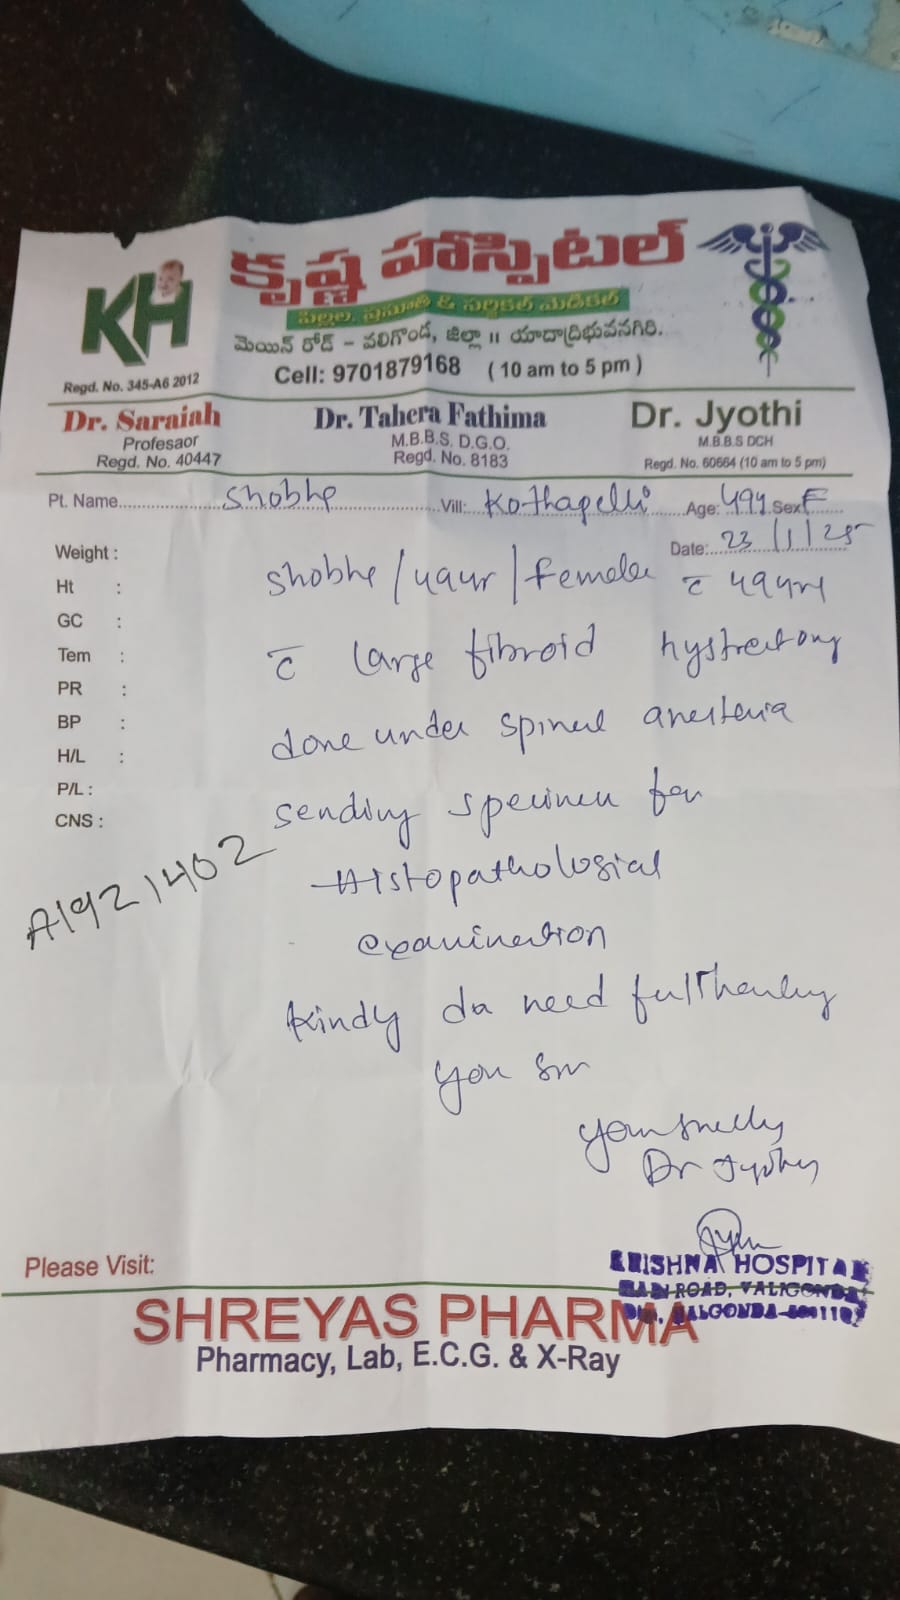 KH
కృష్ణ హాస్పిటల్
పిల్లల, ప్రసూతి & సర్జికల్ మెడికల్
మెయిన్ రోడ్ - వలిగొండ, జిల్లా ॥ యాదాద్రిభువనగిరి.
Regd. No. 345-A6 2012
Cell: 9701879168 ( 10 am to 5 pm )
Dr. Saraiah
Profesaor
Regd. No. 40447
Dr. Tahera Fathima
M.B.B.S. D.G.O.
Regd. No. 8183
Dr. Jyothi
M.B.B.S DCH
Regd. No. 60664 (10 am to 5 pm)
Pt. Name Shobhe Vill: Kothapelli Age: 49y Sex F
Date: 23/1/25
Weight :
Ht :
GC :
Tem :
PR :
BP :
H/L :
P/L :
CNS :
Shobhe / 49yr / Female c̄ 49yrs
c̄ large fibroid hystrectomy
done under spinal anesteria
sending specimen for
Histopathologial
examination
A1921402
Kindy do need full Thanking
you sir
Dr Jyothy
KRISHNA HOSPITAL
MAIN ROAD, VALIGONDA
Please Visit:
SHREYAS PHARMA
Pharmacy, Lab, E.C.G. & X-Ray